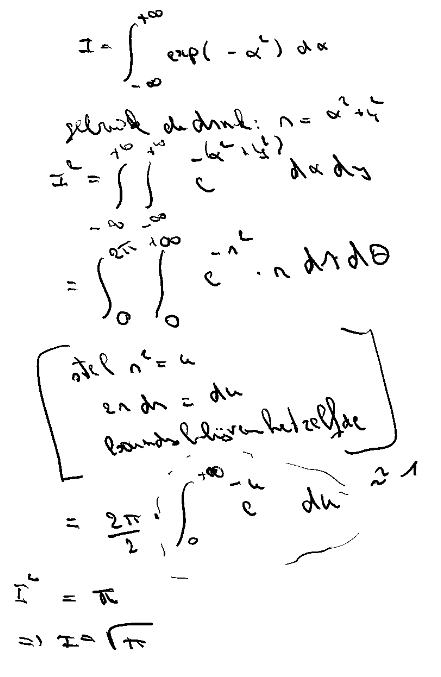 I = ∫_{-∞}^{+∞} exp(-x²) dx
gebruik de truuk: r = x²+y²
I² = ∫_{-∞}^{+∞} ∫_{-∞}^{+∞} e^{-(x²+y²)} dx dy
= ∫_0^{2π} ∫_0^{+∞} e^{-r²} · r dr dθ
[stel r² = u
2r dr = du
bounds blijven hetzelfde]
= 2π/2 · ∫_0^{+∞} e^{-u} du ≈ 1
I² = π
=> I = √π